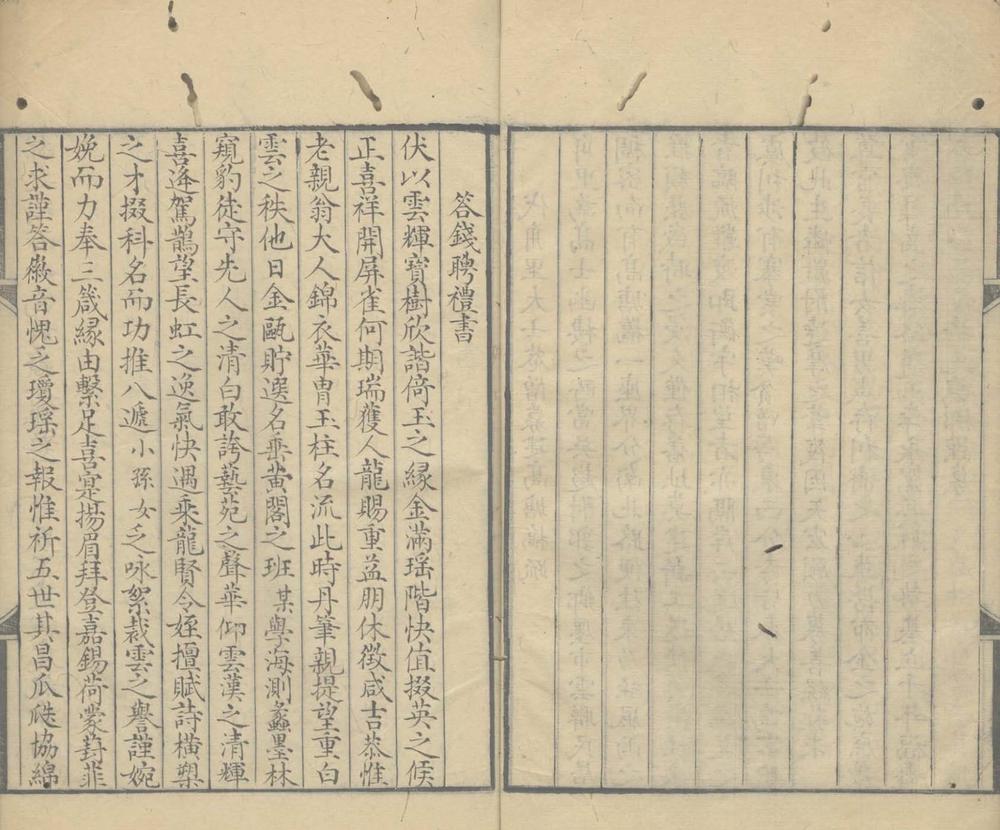 答錢聘禮書
伏以雲輝寶樹欣諧倚玉之緣金滿瑶階快值掇英之候
正喜祥開屏雀何期瑞獲人龍賜重益朋休徵咸吉恭惟
老親翁大人錦衣華胄玉柱名流此時丹筆親提望重白
雲之秩他日金甌貯選名垂黄閣之班某學海測蠡墨林
窺豹徒守先人之清白敢誇藝苑之聲華仰雲漢之清輝
喜逢駕鵲望長虹之逸氣快遇乘龍賢令姪擅賦詩横槊
之才掇科名而功推八遞小孫女乏咏絮裁雲之譽謹婉
娩而力奉三箴緣由繫足喜寔揚眉拜登嘉錫荷蒙葑菲
之求謹答徽音愧乏瓊瑶之報惟祈五世其昌瓜瓞協綿